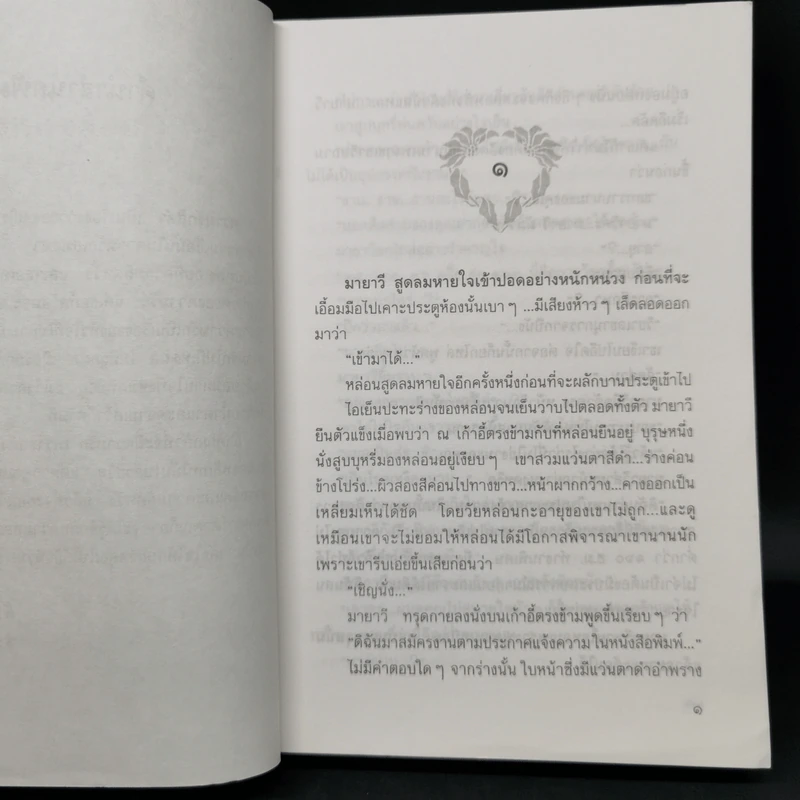 ๑
มายาวี สูดลมหายใจเข้าปอดอย่างหนักหน่วง ก่อนที่จะ
เอื้อมมือไปเคาะประตูห้องนั้นเบา ๆ ...มีเสียงห้าว ๆ เล็ดลอดออก
มาว่า
"เข้ามาได้..."
หล่อนสูดลมหายใจอีกครั้งหนึ่งก่อนที่จะผลักบานประตูเข้าไป
ไอเย็นปะทะร่างของหล่อนจนเย็นวาบไปตลอดทั้งตัว มายาวี
ยืนตัวแข็งเมื่อพบว่า ณ เก้าอี้ตรงข้ามกับที่หล่อนยืนอยู่ บุรุษหนึ่ง
นั่งสูบบุหรี่มองหล่อนอยู่เงียบ ๆ เขาสวมแว่นตาสีดำ...ร่างค่อน
ข้างโปร่ง...ผิวสองสีค่อนไปทางขาว...หน้าผากกว้าง...คางออกเป็น
เหลี่ยมเห็นได้ชัด โดยวัยหล่อนกะอายุของเขาไม่ถูก...และดู
เหมือนเขาจะไม่ยอมให้หล่อนได้มีโอกาสพิจารณาเขานานนัก
เพราะเขารีบเอ่ยขึ้นเสียก่อนว่า
"เชิญนั่ง..."
มายาวี ทรุดกายลงนั่งบนเก้าอี้ตรงข้ามพูดขึ้นเรียบ ๆ ว่า
"ดิฉันมาสมัครงานตามประกาศแจ้งความในหนังสือพิมพ์..."
ไม่มีคำตอบใด ๆ จากร่างนั้น ใบหน้าซึ่งมีแว่นตาดำอำพราง
๑